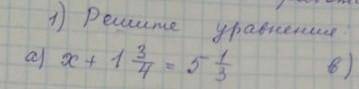 1) Решите уравнение
а) x + 1 3/4 = 5 1/3 в)